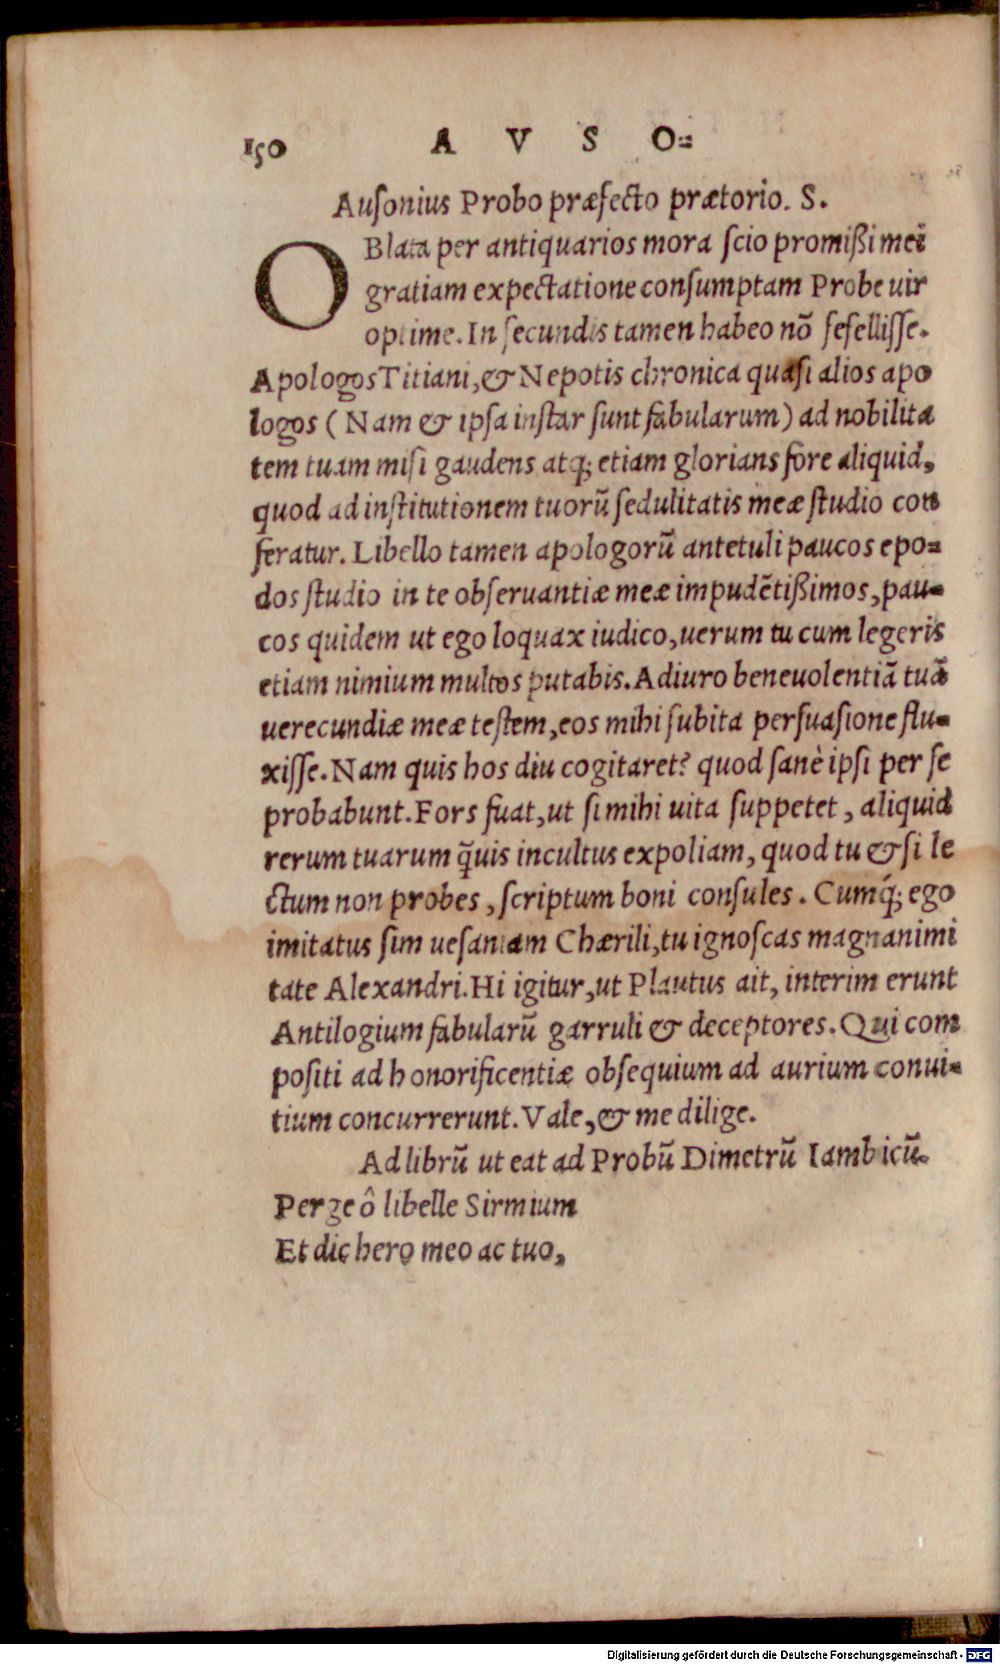 150 A V S O=
Auſonius Probo præfecto prætorio. S.
OBlata per antiquarios mora ſcio promißi mei
gratiam expectatione conſumptam Probe uir
optime. In ſecundis tamen habeo nõ fefelliſſe.
Apologos Titiani, & Nepotis chronica quaſi alios apo
logos (Nam & ipſa inſtar ſunt fabularum) ad nobilita
tem tuam miſi gaudens atq; etiam glorians fore aliquid,
quod ad inſtitutionem tuorũ ſedulitatis meæ ſtudio con
feratur. Libello tamen apologorũ antetuli paucos epo=
dos ſtudio in te obſeruantiæ meæ impudẽtißimos, pau=
cos quidem ut ego loquax iudico, uerum tu cum legeris
etiam nimium multos putabis. Adiuro beneuolentiã tuã
uerecundiæ meæ teſtem, eos mihi ſubita perſuaſione flu=
xiſſe. Nam quis hos diu cogitaret? quod ſanè ipſi per ſe
probabunt. Fors fuat, ut ſi mihi uita ſuppetet, aliquid
rerum tuarum q̃uis incultus expoliam, quod tu & ſi le
ctum non probes, ſcriptum boni conſules. Cumq́; ego
imitatus ſim ueſaniam Chærili, tu ignoſcas magnanimi
tate Alexandri. Hi igitur, ut Plautus ait, interim erunt
Antilogium fabularũ garruli & deceptores. Qui com
poſiti ad honorificentiæ obſequium ad aurium conui=
tium concurrerunt. Vale, & me dilige.
Ad librũ ut eat ad Probũ Dimetrũ Iambicũ.
Perge ô libelle Sirmium
Et dic hero meo ac tuo,
Digitalisierung gefördert durch die Deutsche Forschungsgemeinschaft - DFG